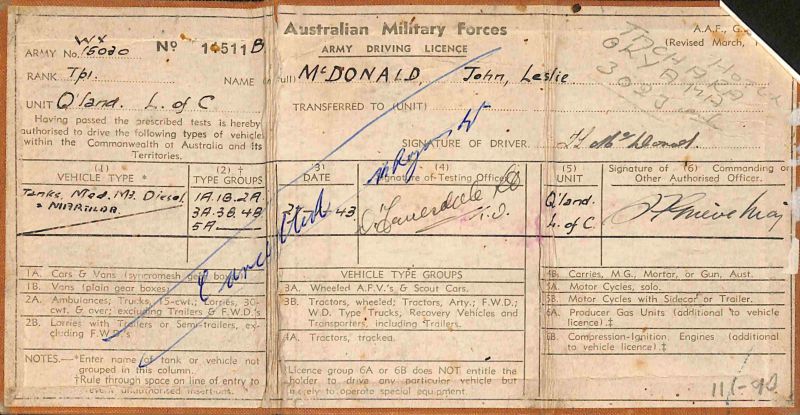 Wx
ARMY No. 15020 No 14511B
RANK Tpr.
UNIT Q'land. L. of C
Having passed the prescribed tests is hereby
authorised to drive the following types of vehicle
within the Commonwealth of Australia and its
Territories.
Australian Military Forces
ARMY DRIVING LICENCE
NAME (in full) McDONALD, John, Leslie
TRANSFERRED TO (UNIT)
SIGNATURE OF DRIVER. McDonald
A.A.F., G.
(Revised March,
HOTEL
OKYAMA
(1)
VEHICLE TYPE *
Tanks. Med. M3. Diesel
" MATILDA
(2) †
TYPE GROUPS
1A. 1B. 2A.
3A. 3B. 4B
5A
(3)
DATE
43
(4)
Signature of Testing Officer.
(5)
UNIT
Q'land.
L. of C.
Signature of (6) Commanding or
Other Authorised Officer.
Cancelled
1A. Cars & Vans (syncromesh gear box)
1B. Vans (plain gear boxes)
2A. Ambulances; Trucks, 15-cwt.; Lorries, 30-
cwt. & over; excluding Trailers & F.W.D.'s
2B. Lorries with Trailers or Semi-trailers, ex-
cluding F.W.D.'s
NOTES.—*Enter name of tank or vehicle not
grouped in this column.
†Rule through space on line of entry to
prevent unauthorised insertions.
VEHICLE TYPE GROUPS
3A. Wheeled A.F.V.'s & Scout Cars.
3B. Tractors, wheeled; Tractors, Arty.; F.W.D.;
W.D. Type Trucks, Recovery Vehicles and
Transporters, including Trailers.
4A. Tractors, tracked.
‡Licence group 6A or 6B does NOT entitle the
holder to drive any particular vehicle but
merely to operate special equipment.
4B. Carriers, M.G., Mortar, or Gun, Aust.
5A. Motor Cycles, solo.
5B. Motor Cycles with Sidecar or Trailer.
6A. Producer Gas Units (additional to vehicle
licence).‡
6B. Compression-Ignition Engines (additional
to vehicle licence).‡